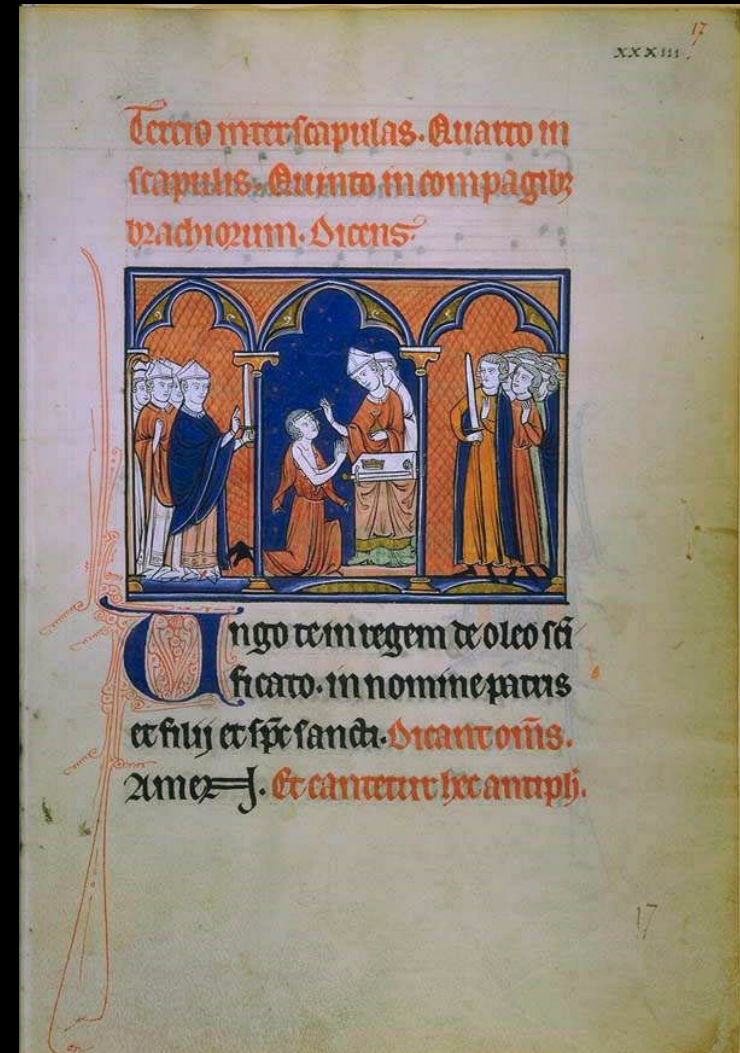 17
xxxiii.
Tertio inter scapulas. Quarto in
scapulis. Quinto in compagib;
brachiorum. Dicens.
Ungo te in regem de oleo scī
ficato. in nomine patris
et filij et sp̄c sancti. Dicant om̄s.
Amen. Et cantetur hec antiph̄.
17